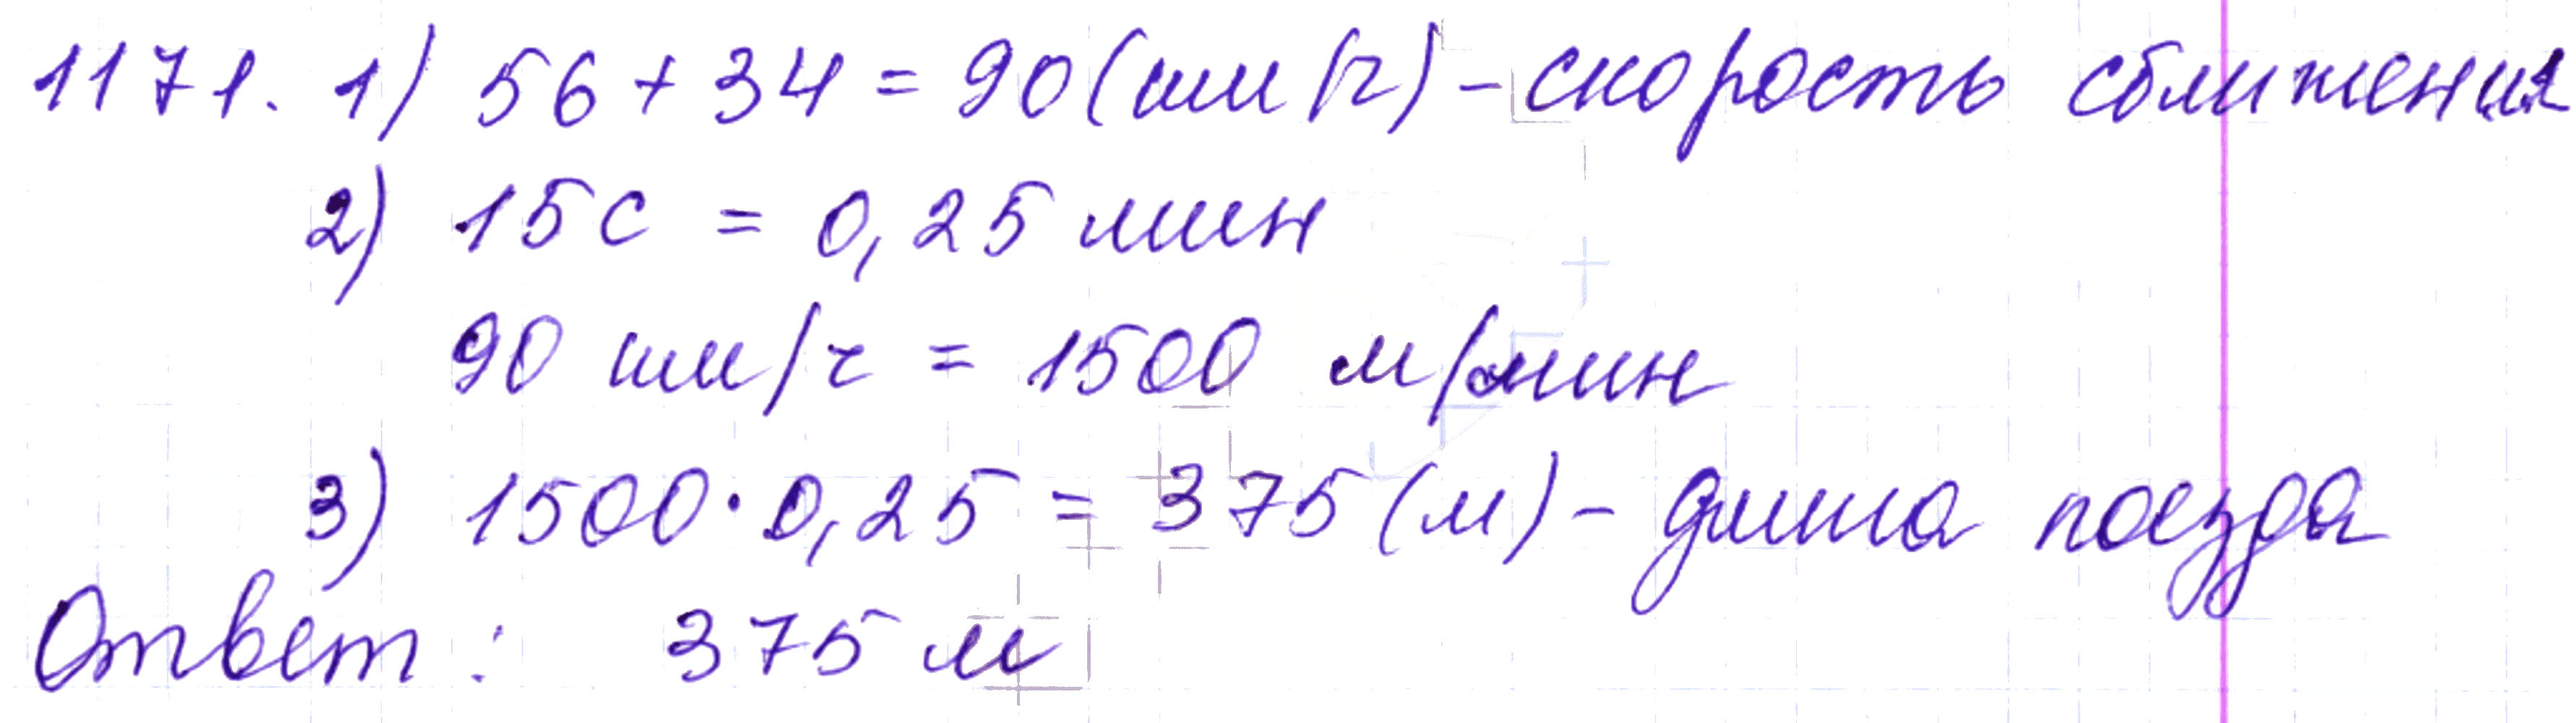 1171. 1) 56 + 34 = 90 (км/ч) - скорость сближения
2) 15 с = 0,25 мин
90 км/ч = 1500 м/мин
3) 1500 · 0,25 = 375 (м) - длина поезда
Ответ : 375 м